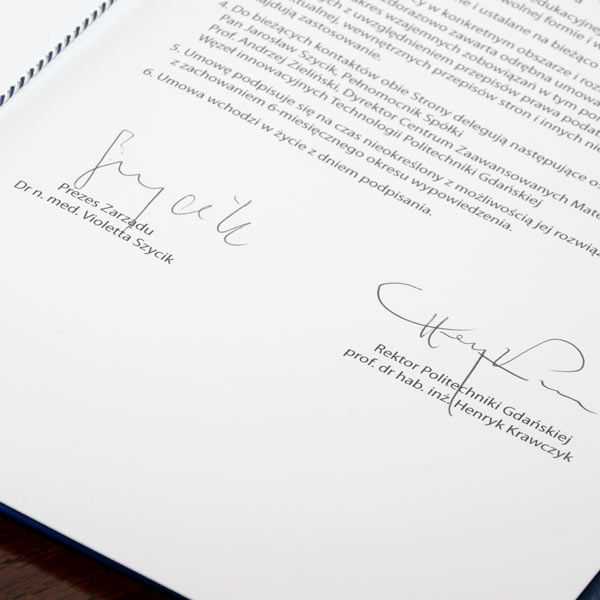 edukacyjnej
w konkretnym obszarze i roz
ie i ustalane na bieżąco
wolnej formie i w
zdorazowo zawarta odrębna umowa
akres wzajemnych zobowiązań w tym por
z uwzględnieniem przepisów prawa podat
ktualnej, wewnętrznych przepisów stron i innych nie
ajdują zastosowanie.
4. Do bieżących kontaktów obie Strony delegują następujące os
Pan Jarosław Szycik, Pełnomocnik Spółki
Prof. Andrzej Zieliński, Dyrektor Centrum Zaawansowanych Mate
Węzeł innowacyjnych Technologii Politechniki Gdańskiej
5. Umowę podpisuje się na czas nieokreślony z możliwością jej rozwiąz
z zachowaniem 6-miesięcznego okresu wypowiedzenia.
6. Umowa wchodzi w życie z dniem podpisania.
Szycik
Prezes Zarządu
Dr n. med. Violetta Szycik
Rektor Politechniki Gdańskiej
prof. dr hab. inż. Henryk Krawczyk